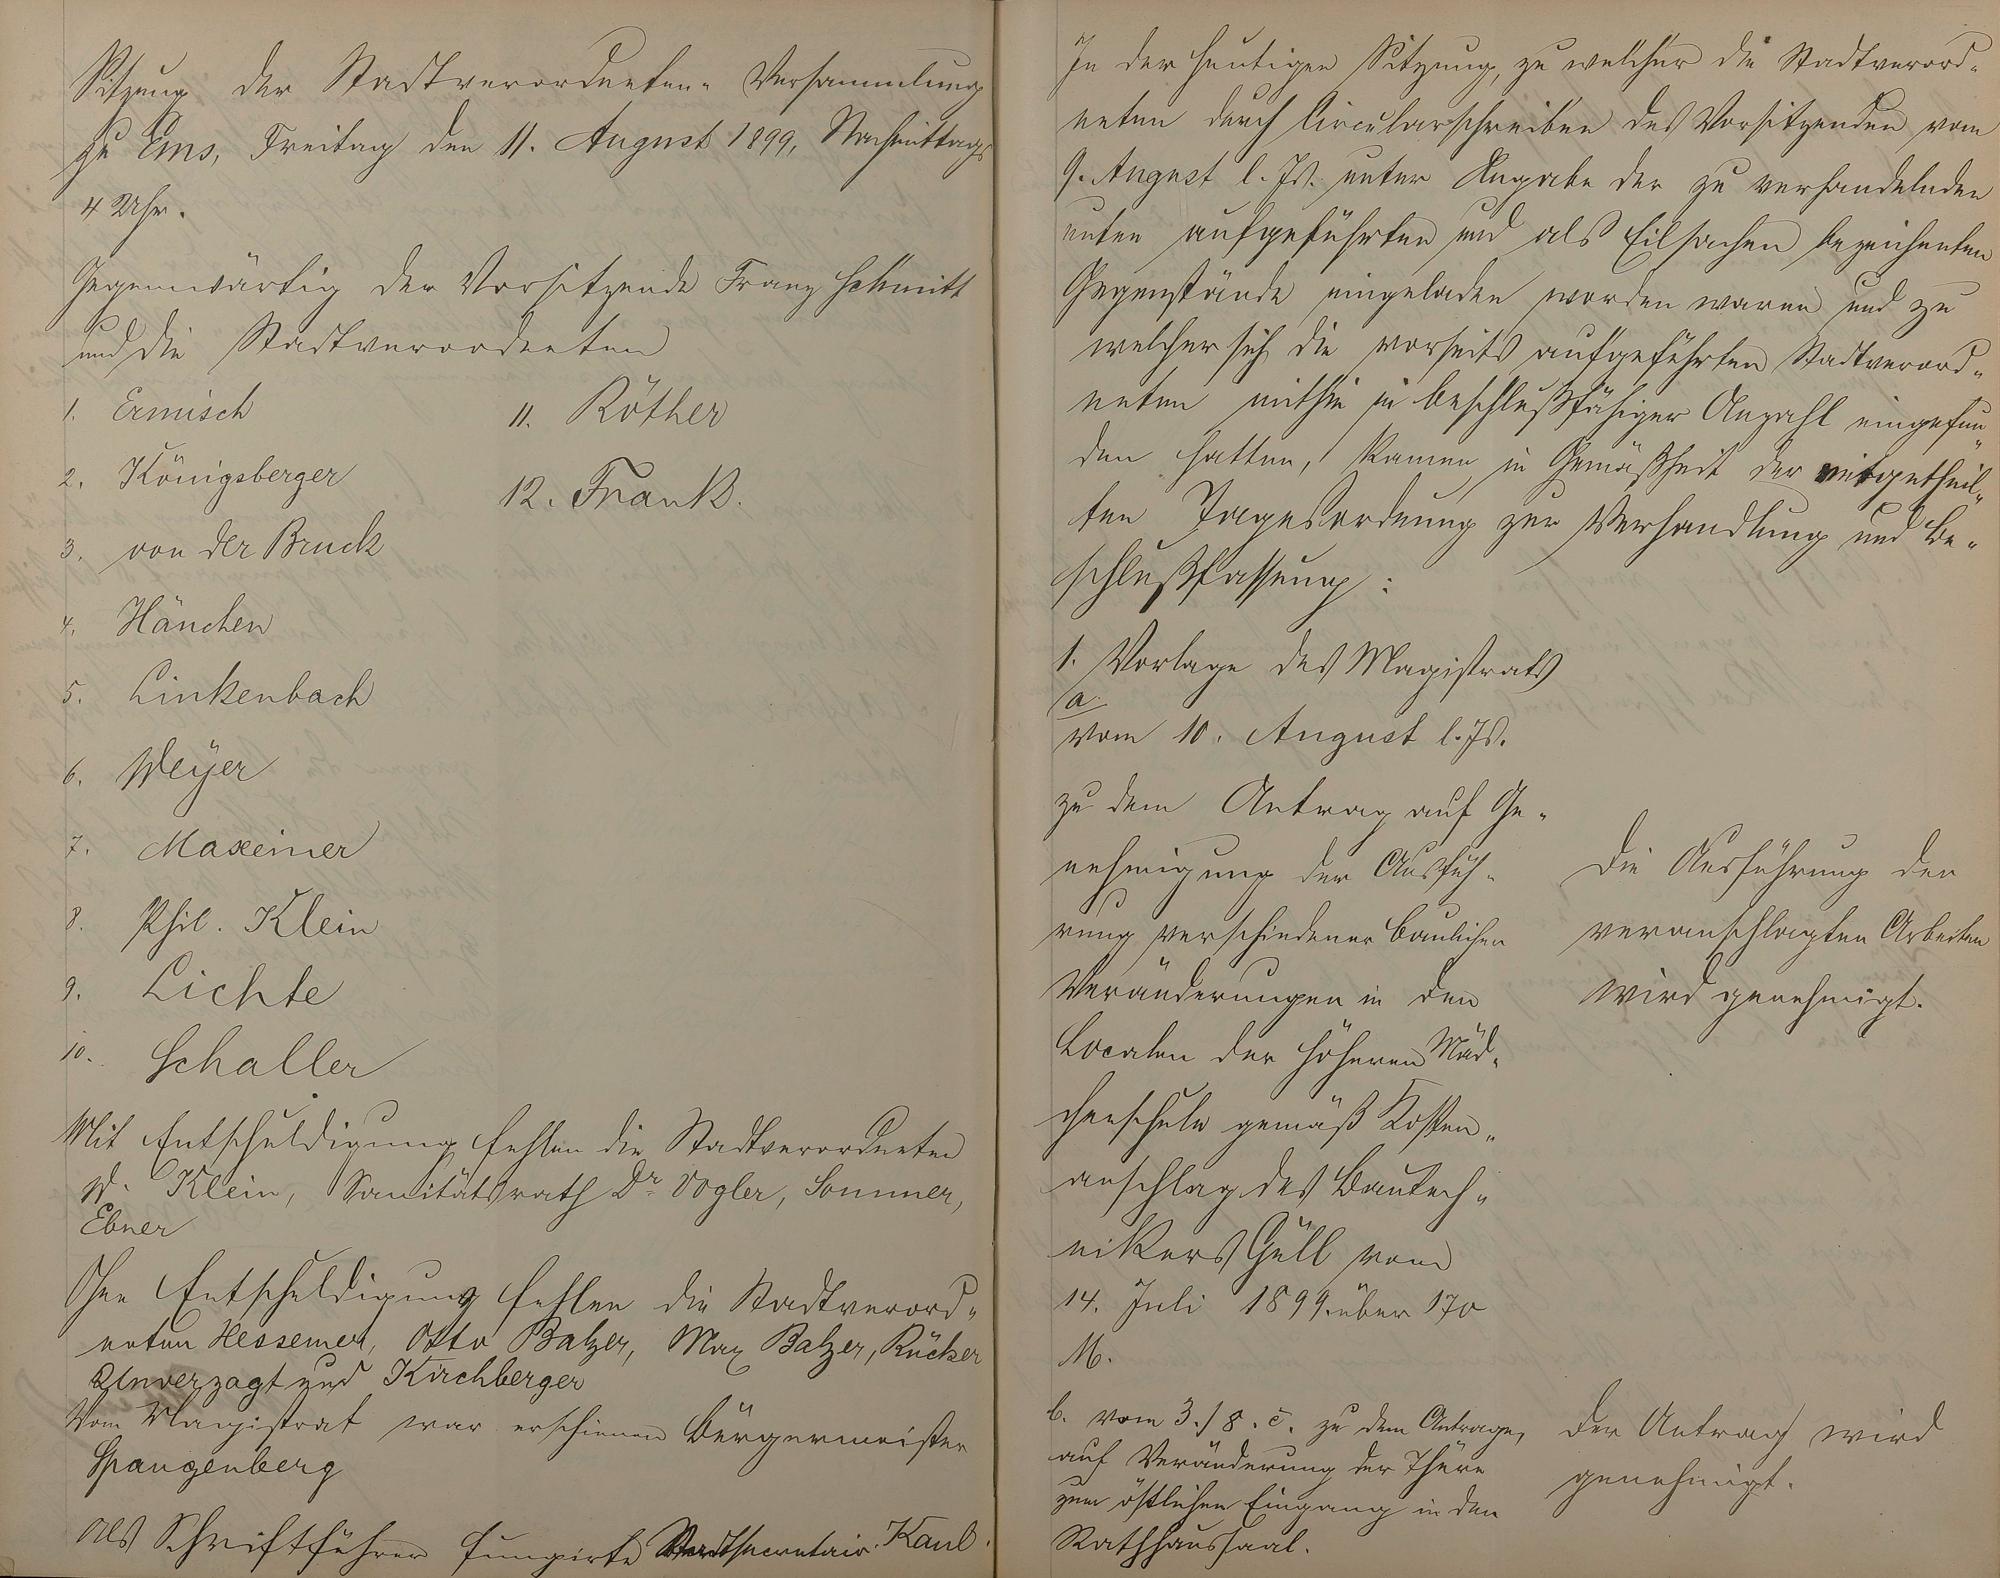 Sitzung der Stadtverordneten-Versammlung
zu Ems, Freitag den 11. August 1899, Nachmittags
4 Uhr.
Gegenwärtig der Vorsitzende Franz Schmitt
und die Stadtverordneten
1. Ermisch
2. Königsberger
3. von der Bruck
4. Hänchen
5. Linkenbach
6. Weyer
7. Maxeiner
8. Phil. Klein
9. Lichte
10. Schaller
11. Röther
12. Frank.
Mit Entschuldigung fehlen die Stadtverordneten
W. Klein, Sanitätsrath Dr Vogler, Sommer,
Ebner
Ohne Entschuldigung fehlen die Stadtverord-
neten Hessemer, Otto Balzer, Max Balzer, Rücker
Unverzagt und Kirchberger
Vom Magistrat war erschienen Bürgermeister
Spangenberg
Als Schriftführer fungirte Stadtsecretair Kaul.
In der heutigen Sitzung, zu welcher die Stadtverord-
neten durch Circularschreiben des Vorsitzenden vom
9. August l. Js. unter Angabe der zu verhandelnden
unten aufgeführten und als Eilsachen bezeichneten
Gegenstände eingeladen worden waren und zu
welcher sich die vorseits aufgeführten Stadtverord-
neten mithin in beschlußfähiger Anzahl eingefun-
den hatten, kamen in Gemäßheit der mitgetheil-
ten Tagesordnung zur Verhandlung und Be-
schlußfassung:
1. Vorlage des Magistrats
a.
vom 10. August l. Js.
zu dem Antrag auf Ge-
nehmigung der Ausfüh-
rung verschiedener baulichen
Veränderungen in den
Localen der höheren Mäd-
chenschule gemäß Kosten-
anschlag des Bautech-
nikers Güll vom
14. Juli 1899 über 170
M.
Die Ausführung der
veranschlagten Arbeiten
wird genehmigt.
b. vom 3./8. c. zu dem Antrage,
auf Veränderung der Thüre
zum östlichen Eingang in den
Rathhaussaal.
Der Antrag wird
genehmigt.